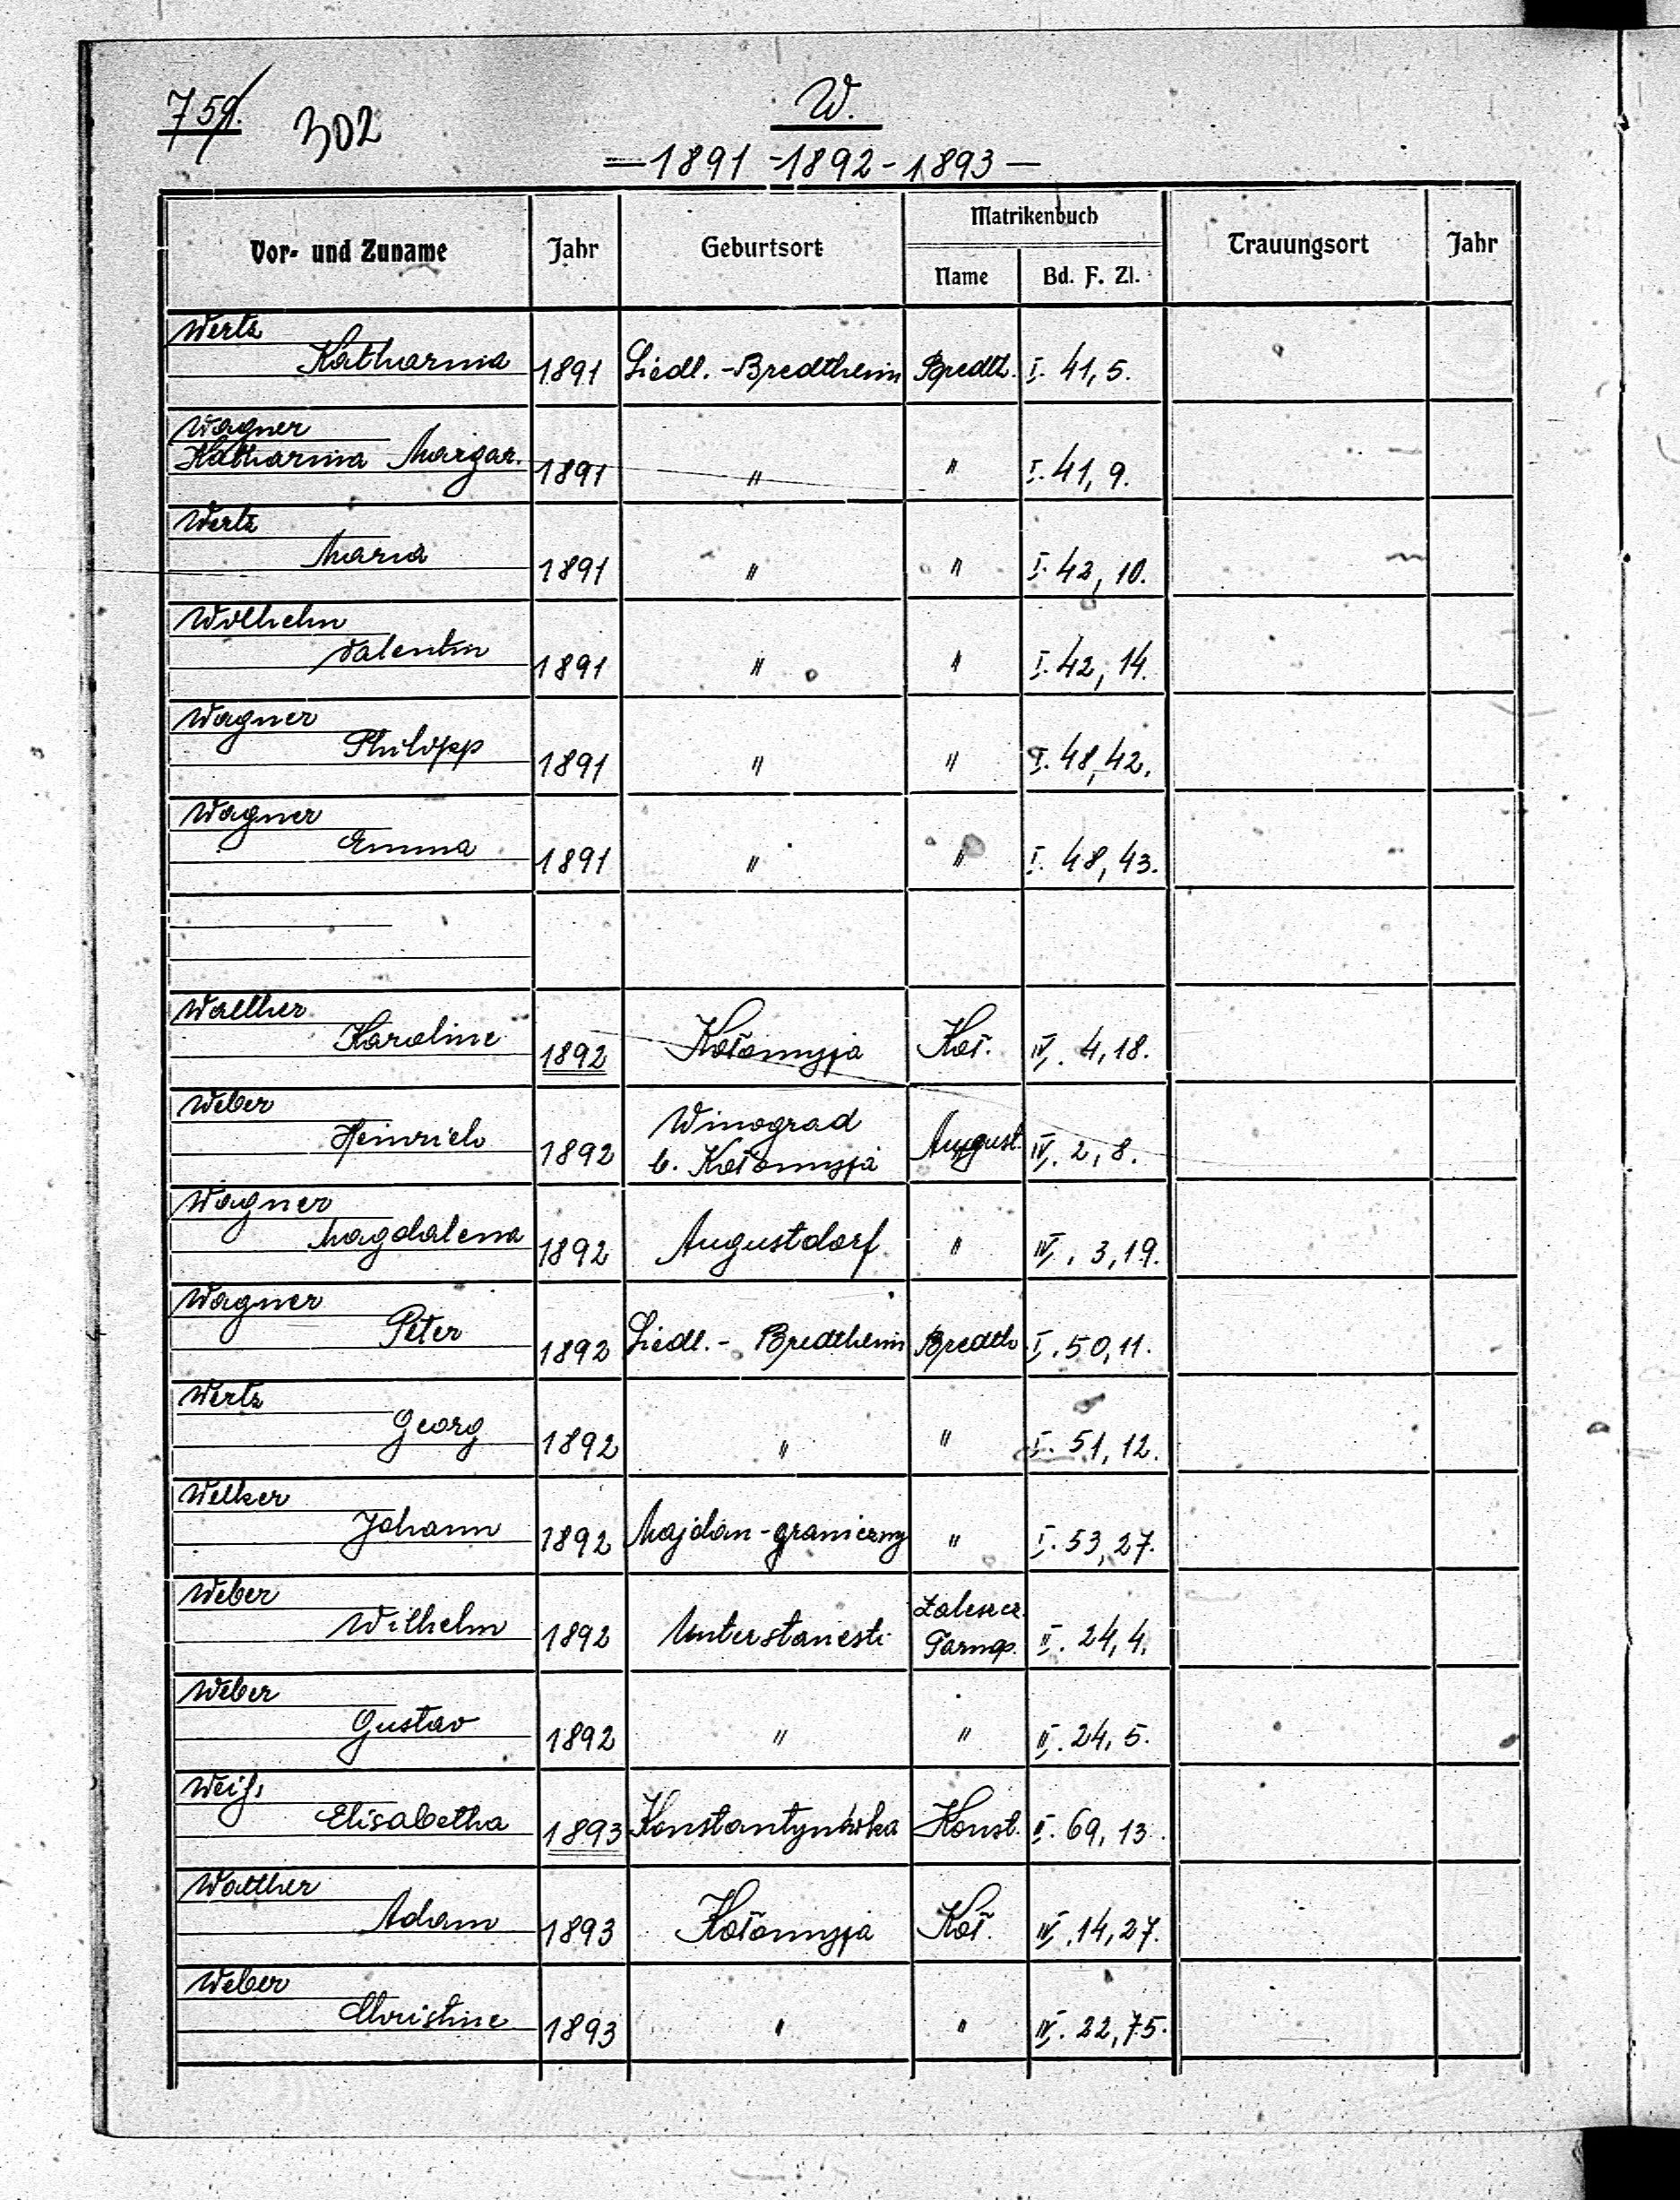 759.
302
W.
— 1891 - 1892 - 1893 —
Vor- und Zuname Jahr Geburtsort Matrikenbuch Trauungsort Jahr
Name Bd. F. Zl.
Wertz
Katharina 1891 Siedl. - Bredtheim Bredth. I. 41, 5.
Wagner
Katharina Margar. 1891 " " I. 41, 9.
Wertz
Maria 1891 " " I. 42, 10.
Wilhelm
Valentin 1891 " " I. 42, 14.
Wagner
Philipp 1891 " " I. 48, 42.
Wagner
Emma 1891 " " I. 48, 43.
Walther
Karoline 1892 Kołomyja Koł. IV. 4, 18.
Weber
Heinrich 1892 Winograd b. Kołomyja August. IV. 2, 8.
Wagner
Magdalena 1892 Augustdorf " IV. 3, 19.
Wagner
Peter 1892 Siedl. - Bredtheim Bredth I. 50, 11.
Wertz
Georg 1892 " " I. 51, 12.
Welker
Johann 1892 Majdan - graniczny " I. 53, 27.
Weber
Wilhelm 1892 Unterstanesti Zaleszcz. Tarnop. II. 24, 4.
Weber
Gustav 1892 " " II. 24, 5.
Weiß
Elisabetha 1893 Konstantynówka Konst. II. 69, 13.
Walther
Adam 1893 Kołomyja Koł. IV. 14, 27.
Weber
Christine 1893 " " IV. 22, 75.